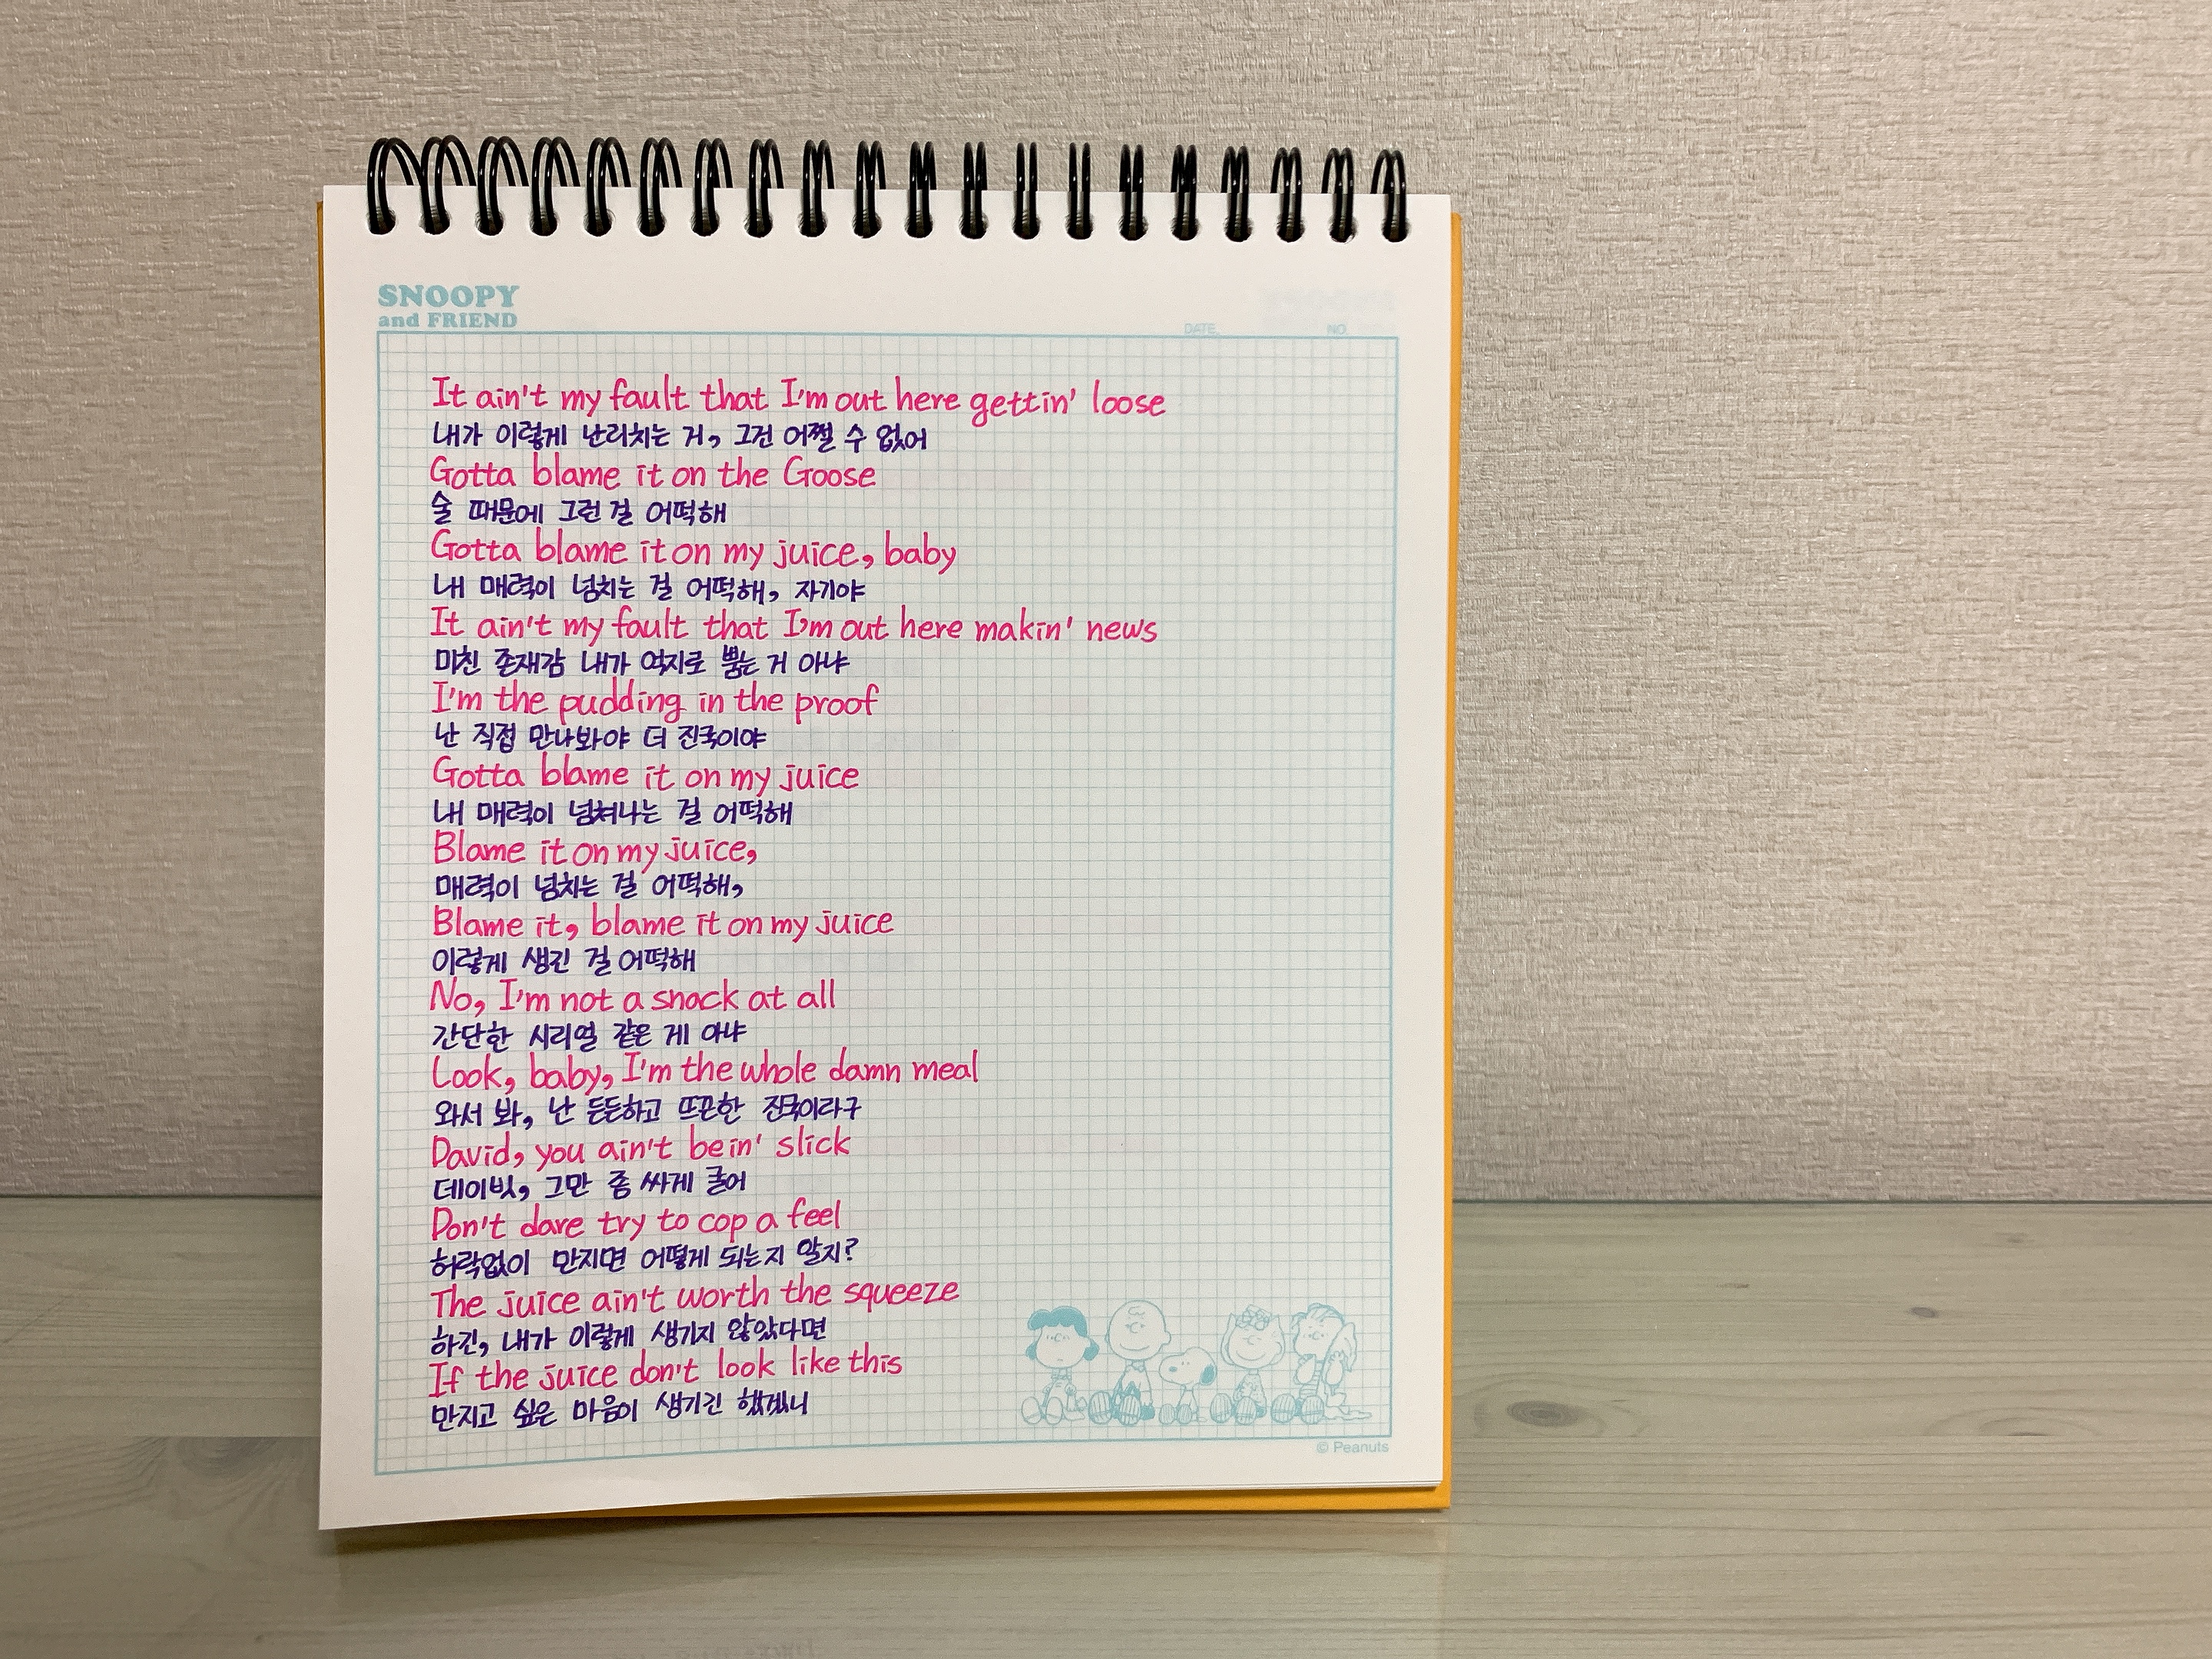 SNOOPY
and FRIEND
DATE. NO.
It ain't my fault that I'm out here gettin' loose
내가 이렇게 난리치는 거, 그건 어쩔 수 없어
Gotta blame it on the Goose
술 때문에 그런 걸 어떡해
Gotta blame it on my juice, baby
내 매력이 넘치는 걸 어떡해, 자기야
It ain't my fault that I'm out here makin' news
미친 존재감 내가 억지로 뿜는 거 아냐
I'm the pudding in the proof
난 직접 만나봐야 더 진국이야
Gotta blame it on my juice
내 매력이 넘쳐나는 걸 어떡해
Blame it on my juice,
매력이 넘치는 걸 어떡해,
Blame it, blame it on my juice
이렇게 생긴 걸 어떡해
No, I'm not a snack at all
간단한 시리얼 같은 게 아냐
Look, baby, I'm the whole damn meal
와서 봐, 난 든든하고 뜨끈한 진국이라구
David, you ain't bein' slick
데이빗, 그만 좀 싸게 굴어
Don't dare try to cop a feel
허락없이 만지면 어떻게 되는지 알지?
The juice ain't worth the squeeze
하긴, 내가 이렇게 생기지 않았다면
If the juice don't look like this
만지고 싶은 마음이 생기긴 했겠니
© Peanuts